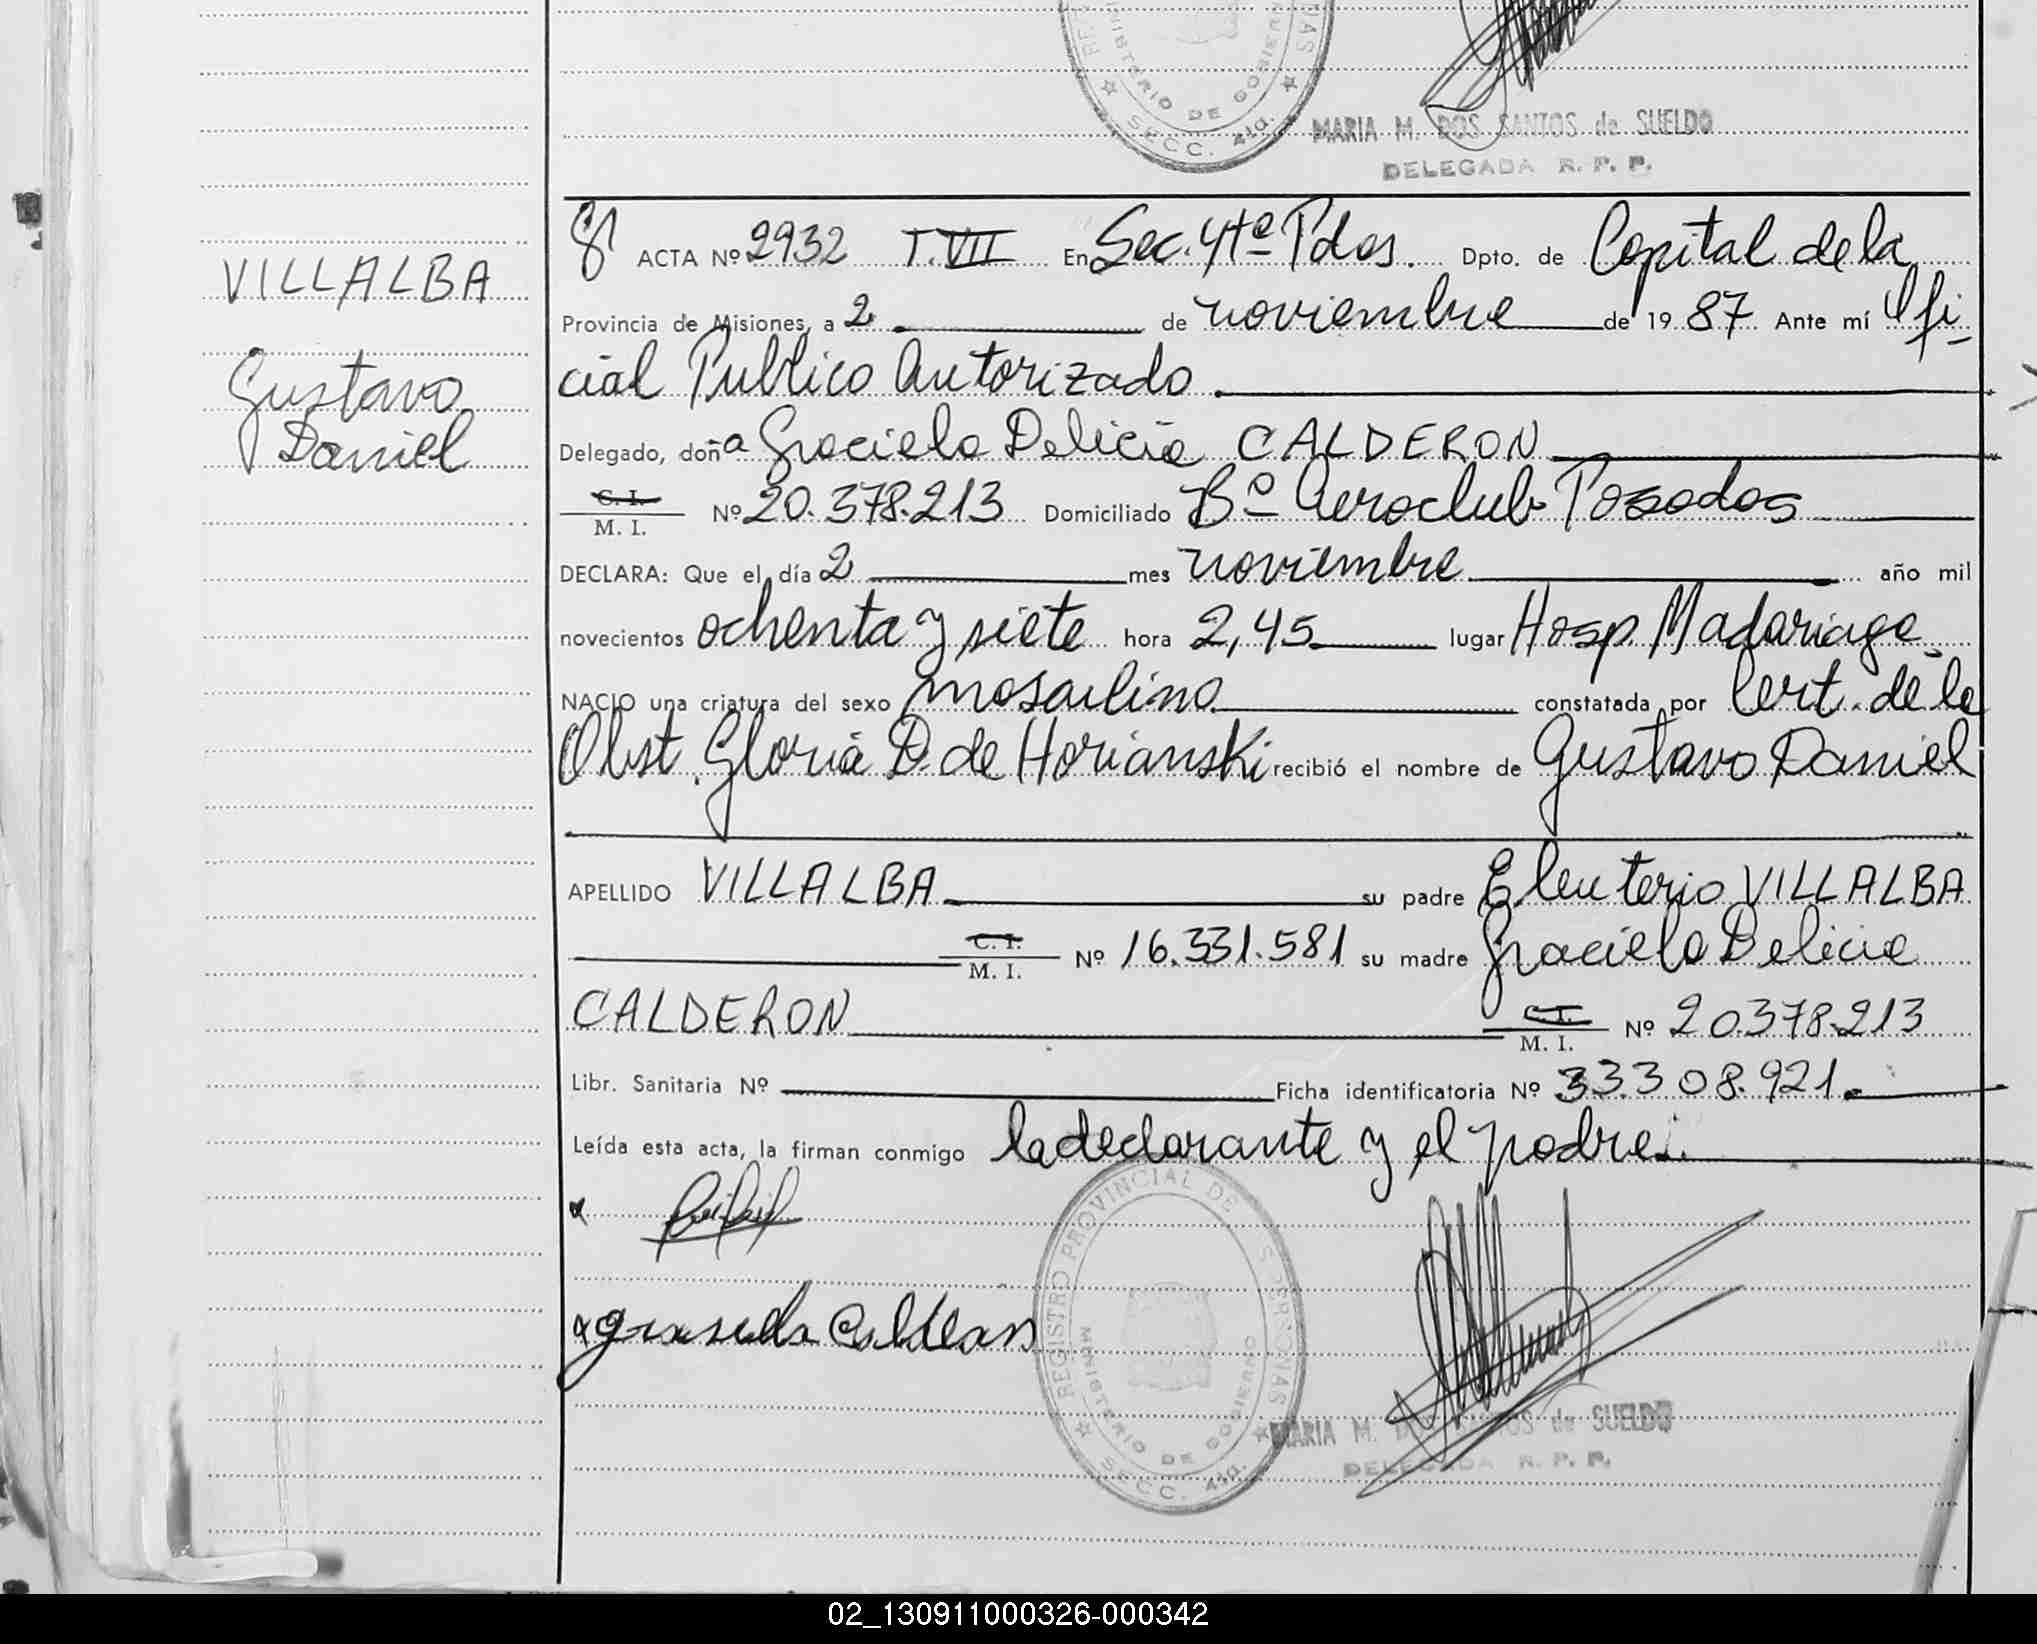 REGISTRO PROVINCIAL DE LAS PERSONAS
MINISTERIO DE GOBIERNO
SECC. 4ta.
MARIA M. DOS SANTOS de SUELDO
DELEGADA R. P. P.
VILLALBA
Gustavo
Daniel
ACTA Nº 2932 T. VII En Sec. 4ta Pdas. Dpto. de Capital de la
Provincia de Misiones, a 2 de noviembre de 1987 Ante mí Ofi-
cial Publico Autorizado
Delegado, doña Graciela Delicia CALDERON
C. I.
M. I. Nº 20.378.213 Domiciliado Bº Aeroclub Posadas
DECLARA: Que el día 2 mes noviembre año mil
novecientos ochenta y siete hora 2,45 lugar Hosp. Madariaga
NACIO una criatura del sexo masculino constatada por Cert. de la
Obst. Gloria D. de Horianski recibió el nombre de Gustavo Daniel
APELLIDO VILLALBA su padre Eleuterio VILLALBA
C. I.
M. I. Nº 16.331.581 su madre Graciela Delicia
CALDERON C. I.
M. I. Nº 20.378.213
Libr. Sanitaria Nº Ficha identificatoria Nº 33.308.921.
Leída esta acta, la firman conmigo la declarante y el padre.
x
x graciela Calderon
REGISTRO PROVINCIAL DE LAS PERSONAS
MINISTERIO DE GOBIERNO
SECC. 4ta.
MARIA M. DOS SANTOS de SUELDO
DELEGADA R. P. P.
02_130911000326-000342